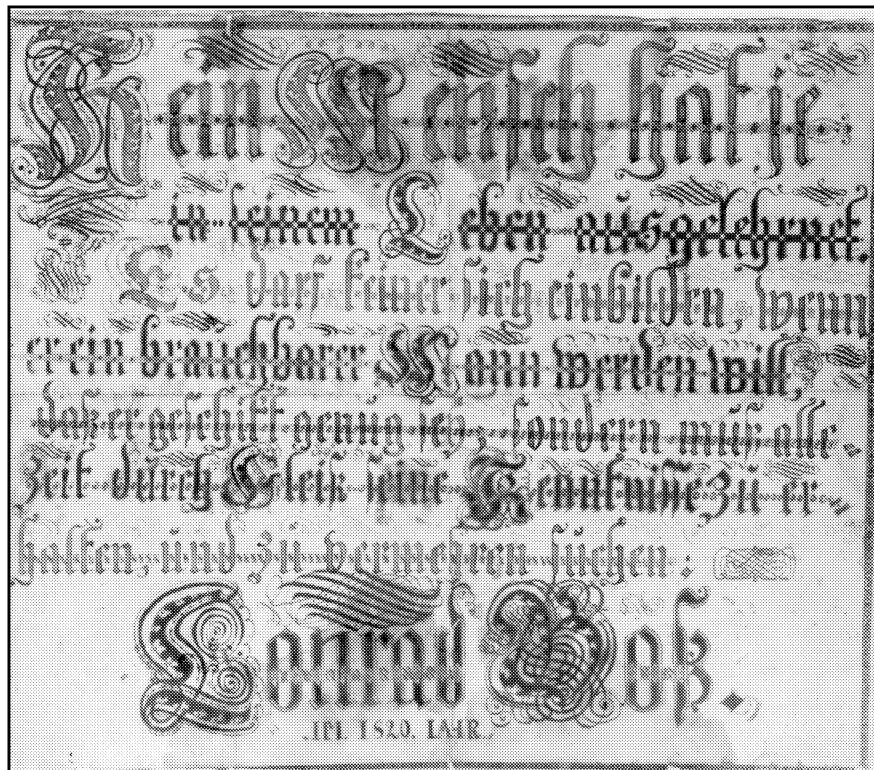 Kein Mensch hat je
in seinem Leben ausgelehrnet.
Es darf keiner sich einbilden, wenn
er ein brauchbarer Mann werden will,
daß er geschikt genug sey, sondern muß alle-
Zeit durch Fleiß seine Kenntniße zu er-
halten, und zu vermehren suchen.
Conrad
IM 1820. IAHR.